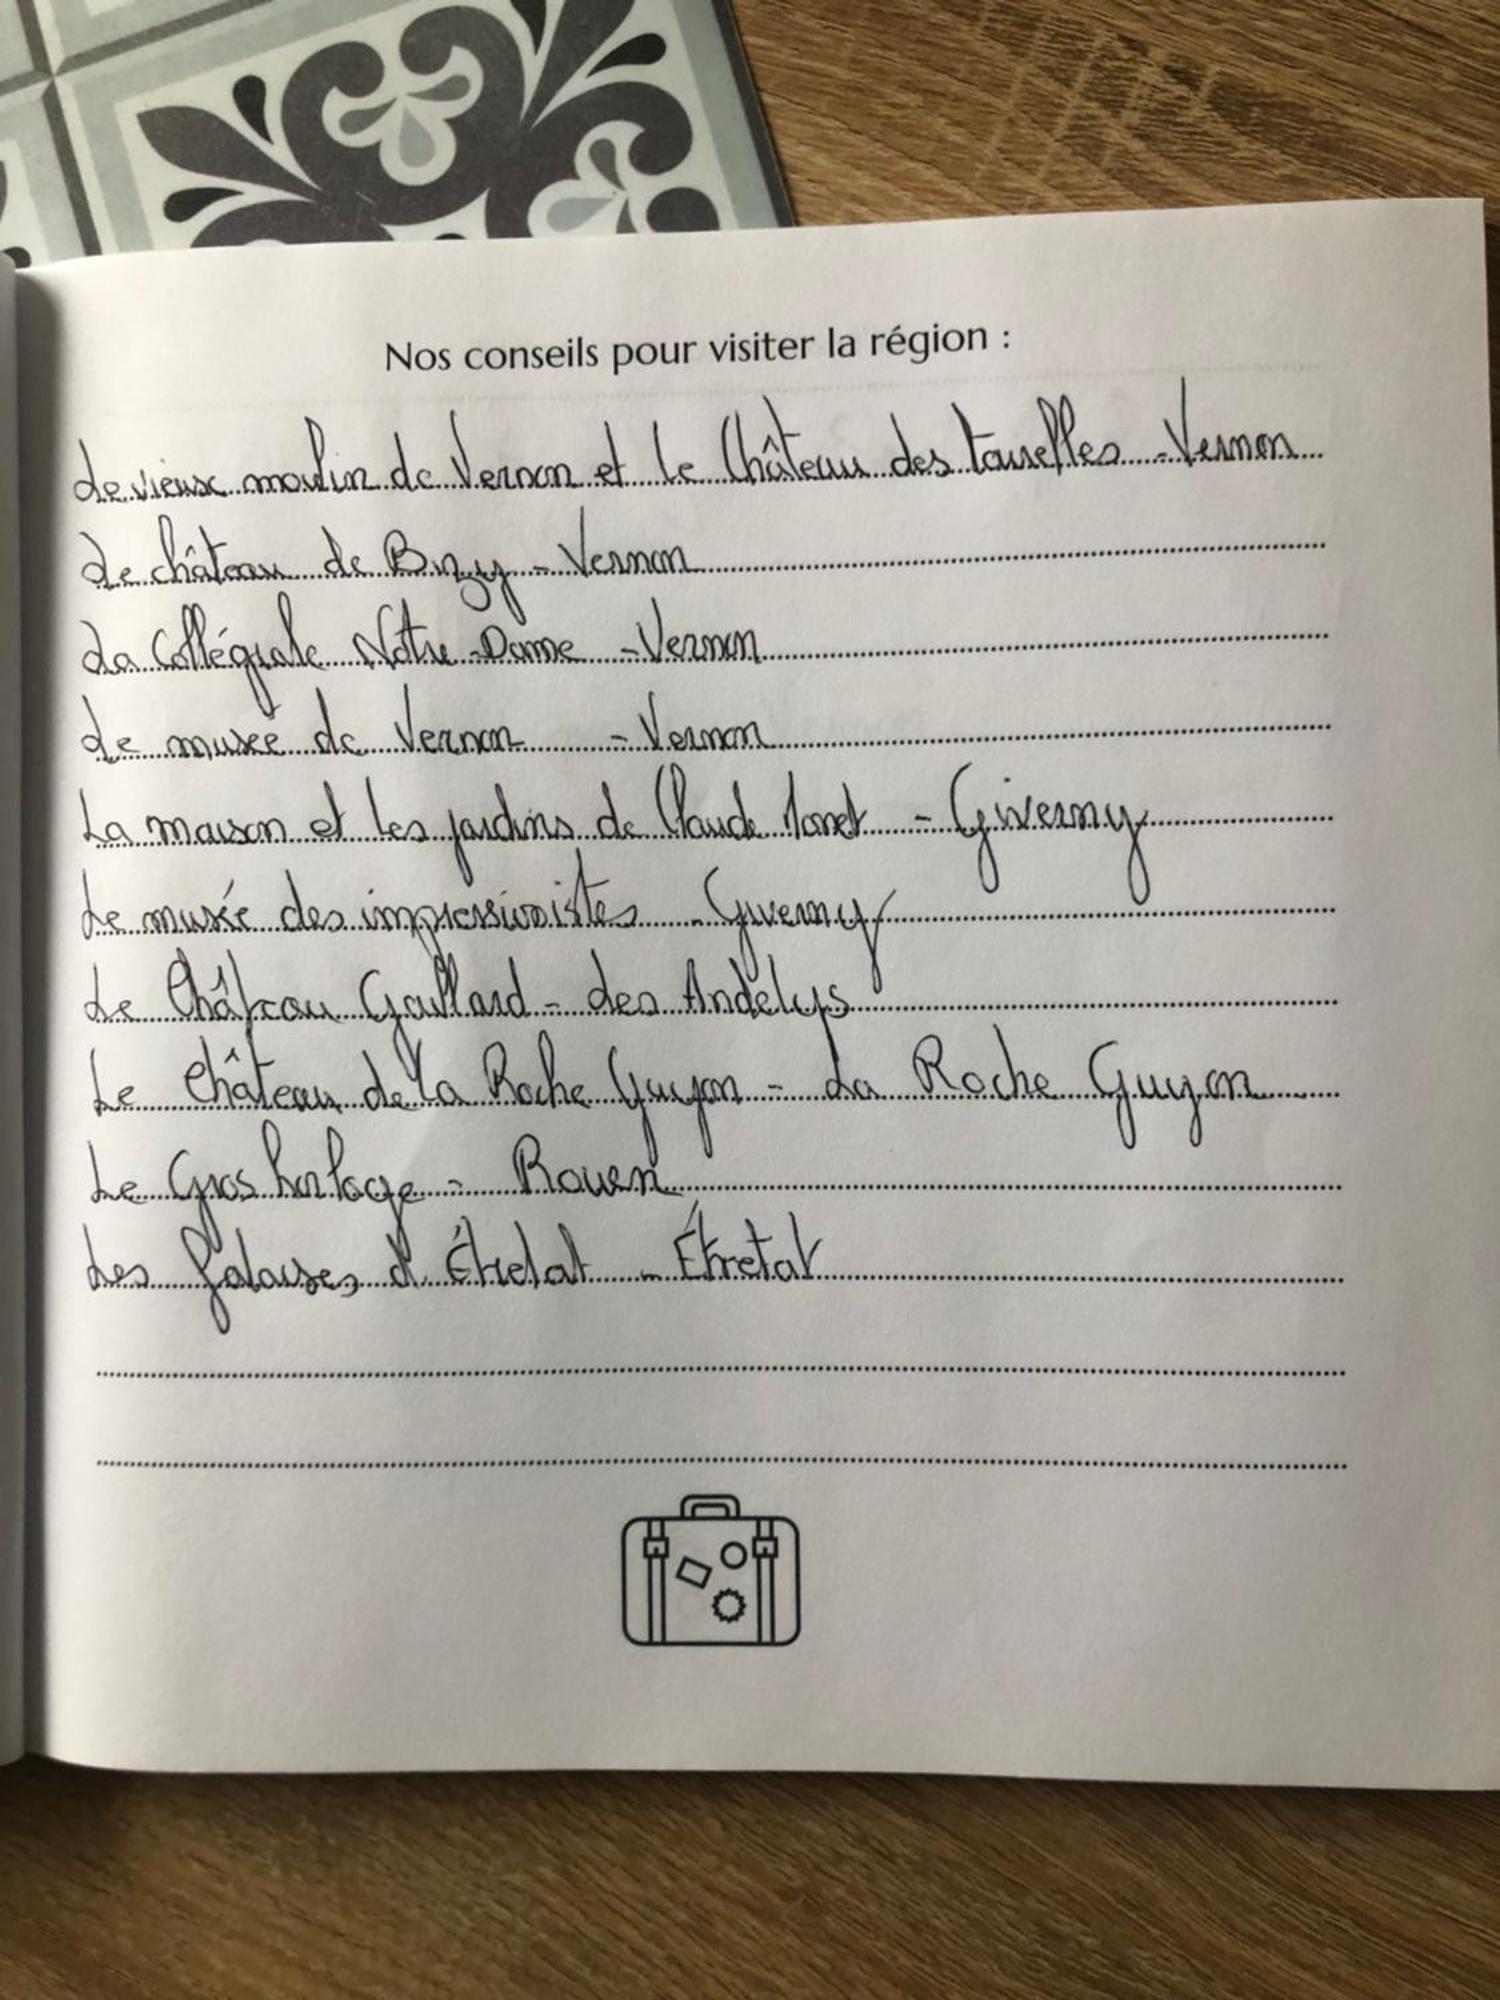 Nos conseils pour visiter la région :
Le vieux moulin de Vernon et le Château des tourelles - Vernon
Le château de Bizy - Vernon
La Collégiale Notre-Dame - Vernon
Le musée de Vernon - Vernon
La maison et les jardins de Claude Monet - Giverny
Le musée des impressionistes - Giverny
Le Château Gaillard - des Andelys
Le Château de la Roche Guyon - La Roche Guyon
Le Gros horloge - Rouen
Les falaises d'Étretat - Étretat